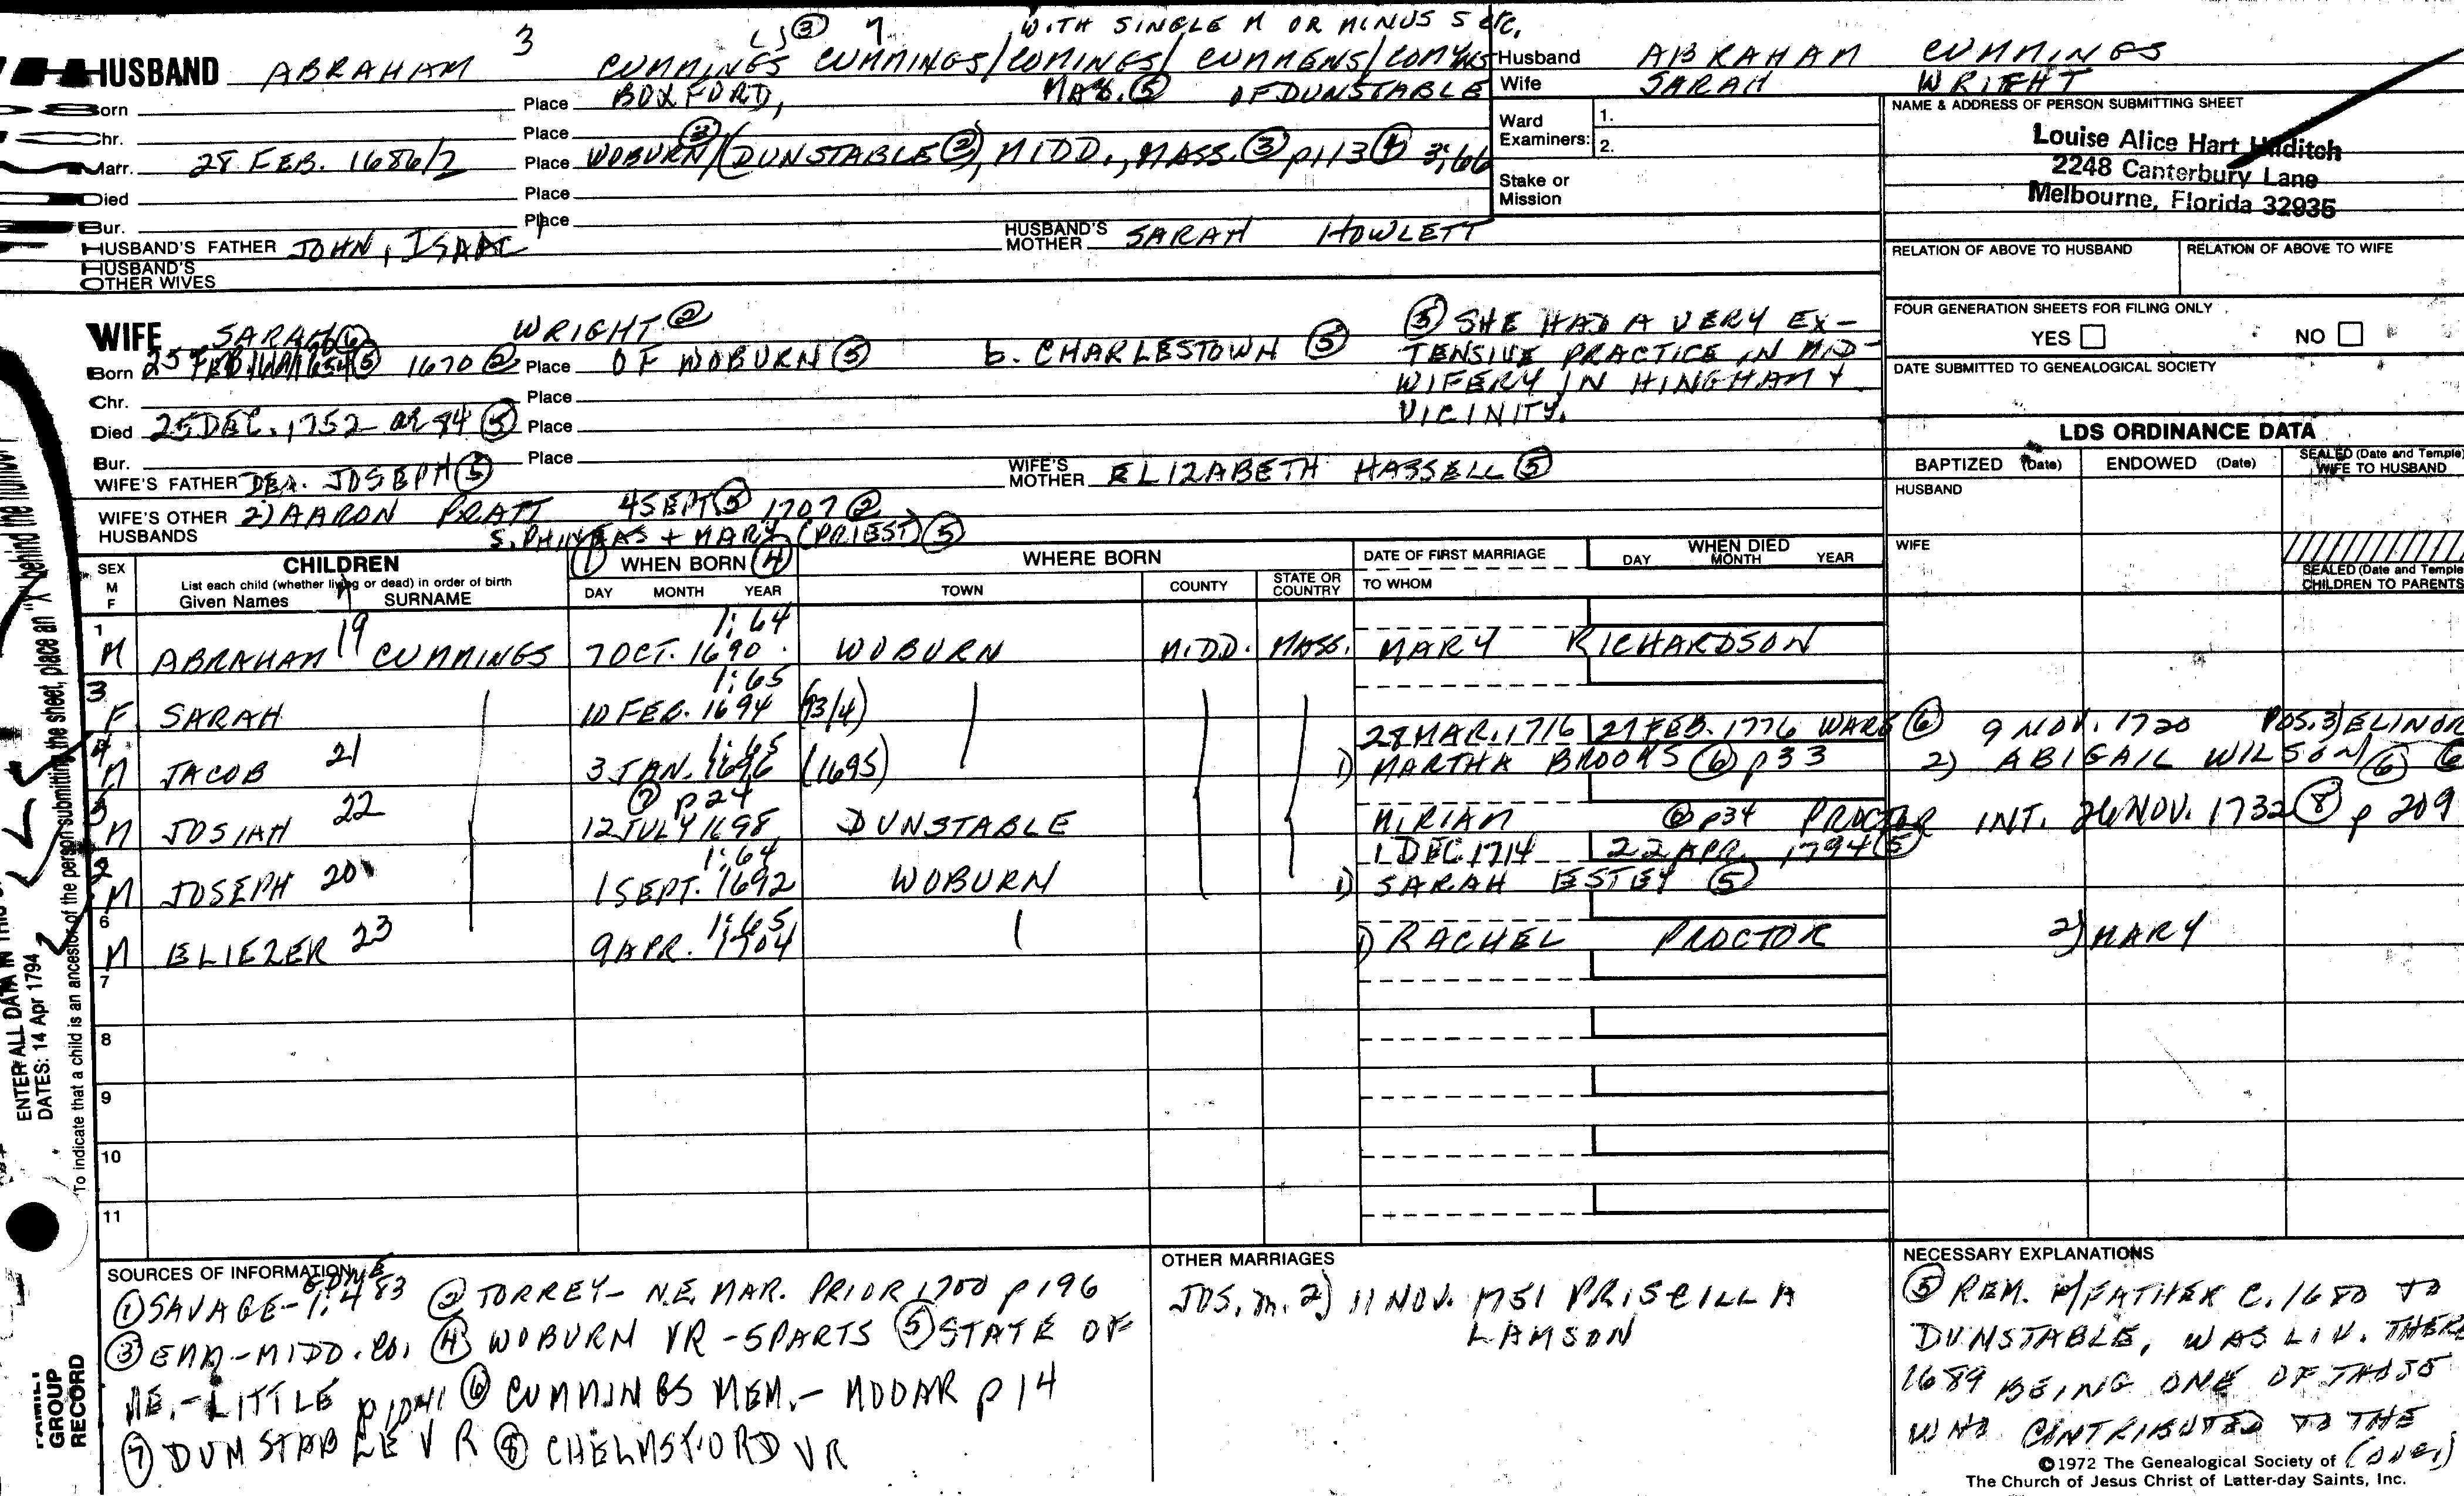 3 ③ 7 WITH SINGLE M OR MINUS S etc.
HUSBAND ABRAHAM CUMMINGS CUMMINGS/COMINGS/CUMMENS/
Husband ABRAHAM CUMMINGS
Wife SARAH WRIGHT
Born Place BOXFORD, MASS. ⑤ OF DUNSTABLE
Chr. Place
Marr. 28 FEB. 1686/7 Place WOBURN ③/(DUNSTABLE ②), MIDD., MASS. ③ p113 ④ 3:66
Died Place
Bur. Place
HUSBAND'S FATHER JOHN, ISAAC
HUSBAND'S MOTHER SARAH HOWLETT
HUSBAND'S OTHER WIVES
Ward Examiners: 1.
2.
Stake or Mission
NAME & ADDRESS OF PERSON SUBMITTING SHEET
Louise Alice Hart Hilditch
2248 Canterbury Lane
Melbourne, Florida 32935
RELATION OF ABOVE TO HUSBAND RELATION OF ABOVE TO WIFE
FOUR GENERATION SHEETS FOR FILING ONLY
YES NO
DATE SUBMITTED TO GENEALOGICAL SOCIETY
WIFE SARAH ⑥ WRIGHT ②
Born 25 FEB 1670 ② Place OF WOBURN ⑤ b. CHARLESTOWN ⑤
Chr. Place
Died 25 DEC. 1752 ae 84 ⑤ Place
Bur. Place
⑤ SHE HAD A VERY EX-
TENSIVE PRACTICE IN MID-
WIFERY IN HINGHAM +
VICINITY.
WIFE'S FATHER DEA. JOSEPH ⑤
WIFE'S MOTHER ELIZABETH HASSELL ⑤
WIFE'S OTHER HUSBANDS 2) AARON PRATT 4 SEPT ⑤ 1707 ②
S. PHINEAS + MARY (PRIEST) ⑤
LDS ORDINANCE DATA
BAPTIZED (Date) ENDOWED (Date) SEALED (Date and Temple) WIFE TO HUSBAND
HUSBAND
WIFE
SEALED (Date and Temple) CHILDREN TO PARENTS
SEX M F
CHILDREN
List each child (whether living or dead) in order of birth
Given Names SURNAME
① WHEN BORN ④
DAY MONTH YEAR
WHERE BORN
TOWN COUNTY STATE OR COUNTRY
DATE OF FIRST MARRIAGE
TO WHOM
WHEN DIED
DAY MONTH YEAR
1 M ABRAHAM 19 CUMMINGS 7 OCT. 1690 1:64 WOBURN MIDD. MASS. MARY RICHARDSON
3 F SARAH 10 FEB. 1694 1:65 (93/4)
28 MAR. 1716 27 FEB. 1776 WARE ⑥ 9 NOV. 1720 POS. 3) ELINOR
4 M JACOB 21 3 JAN. 1696 1:65 (1695) 1) MARTHA BROOKS ⑥ p33 2) ABIGAIL WILSON ⑥ ⑥
5 M JOSIAH 22 12 JULY 1698 ⑦ p24 DUNSTABLE MIRIAM ⑥ p34 PROCTOR INT. 26 NOV. 1732 ⑧ p 209
1 DEC. 1714 22 APR. 1794 ⑤
2 M JOSEPH 20 1 SEPT. 1692 1:64 WOBURN 1) SARAH ESTEY ⑤
6 M ELIEZER 23 9 APR. 1704 1:65 1) RACHEL PROCTOR 2) MARY
7
8
9
10
11
ENTER ALL DATA IN THIS
DATES: 14 Apr 1794
To indicate that a child is an ancestor of the person submitting the sheet, place an "X" behind the number
FAMILY GROUP RECORD
SOURCES OF INFORMATION
① SAVAGE- 1:483 ② TORREY- N.E. MAR. PRIOR 1700 p196
③ EMM-MIDD. CO. ④ WOBURN VR - 5 PARTS ⑤ STATE OF
ME.-LITTLE p1041 ⑥ CUMMINGS MEM.- MOOAR p14
⑦ DUNSTABLE VR ⑧ CHELMSFORD VR
OTHER MARRIAGES
JOS. m. 2) 11 NOV. 1751 PRISCILLA
LAMSON
NECESSARY EXPLANATIONS
⑤ REM. w/FATHER C. 1680 TO
DUNSTABLE, WAS LIV. THERE
1689 BEING ONE OF THOSE
WHO CONTRIBUTED TO THE
(OVER)
©1972 The Genealogical Society of
The Church of Jesus Christ of Latter-day Saints, Inc.